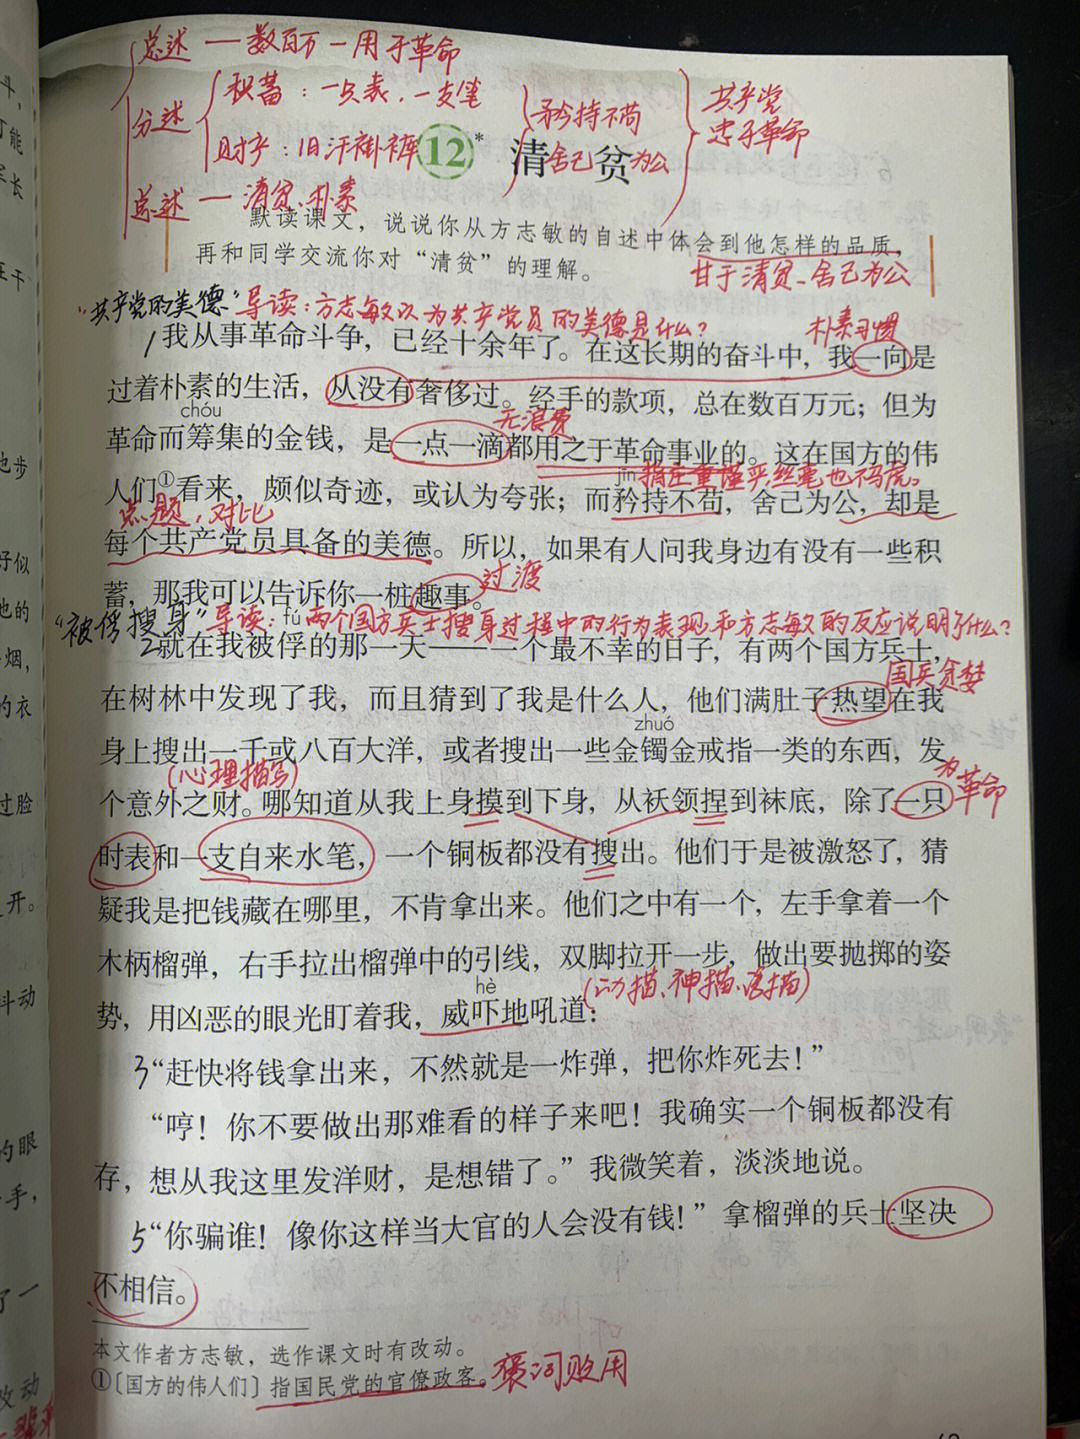 总述 — 数百万 — 用于革命
分述
积蓄：一只表、一支笔
财产：旧汗褂裤
总述 — 清贫、朴素
矜持不苟
舍己为公
共产党
忠于革命
12*
清贫
默读课文，说说你从方志敏的自述中体会到他怎样的品质，
再和同学交流你对“清贫”的理解。
甘于清贫、舍己为公
“共产党的美德”导读：方志敏认为共产党员的美德是什么？
朴素习惯
1我从事革命斗争，已经十余年了。在这长期的奋斗中，我一向是
过着朴素的生活，从没有奢侈过。经手的款项，总在数百万元；但为
chóu
无浪费
革命而筹集的金钱，是一点一滴都用之于革命事业的。这在国方的伟
jīn
指庄重谨严，丝毫也不马虎。
人们①看来，颇似奇迹，或认为夸张；而矜持不苟，舍己为公，却是
点题，对比
每个共产党员具备的美德。所以，如果有人问我身边有没有一些积
蓄，那我可以告诉你一桩趣事。
过渡
“被俘搜身”导读：两个国方兵士搜身过程中的行为表现和方志敏的反应说明了什么？
fú
2就在我被俘的那一天——一个最不幸的日子，有两个国方兵士，
国兵贪婪
在树林中发现了我，而且猜到了我是什么人，他们满肚子热望在我
zhuó
身上搜出一千或八百大洋，或者搜出一些金镯金戒指一类的东西，发
(心理描写)
为革命
个意外之财。哪知道从我上身摸到下身，从袄领捏到袜底，除了一只
时表和一支自来水笔，一个铜板都没有搜出。他们于是被激怒了，猜
疑我是把钱藏在哪里，不肯拿出来。他们之中有一个，左手拿着一个
木柄榴弹，右手拉出榴弹中的引线，双脚拉开一步，做出要抛掷的姿
hè
(动描、神描、语描)
势，用凶恶的眼光盯着我，威吓地吼道：
3“赶快将钱拿出来，不然就是一炸弹，把你炸死去！”
“哼！你不要做出那难看的样子来吧！我确实一个铜板都没有
存，想从我这里发洋财，是想错了。”我微笑着，淡淡地说。
5“你骗谁！像你这样当大官的人会没有钱！”拿榴弹的兵士坚决
不相信。
本文作者方志敏，选作课文时有改动。
①〔国方的伟人们〕指国民党的官僚政客。
褒词贬用